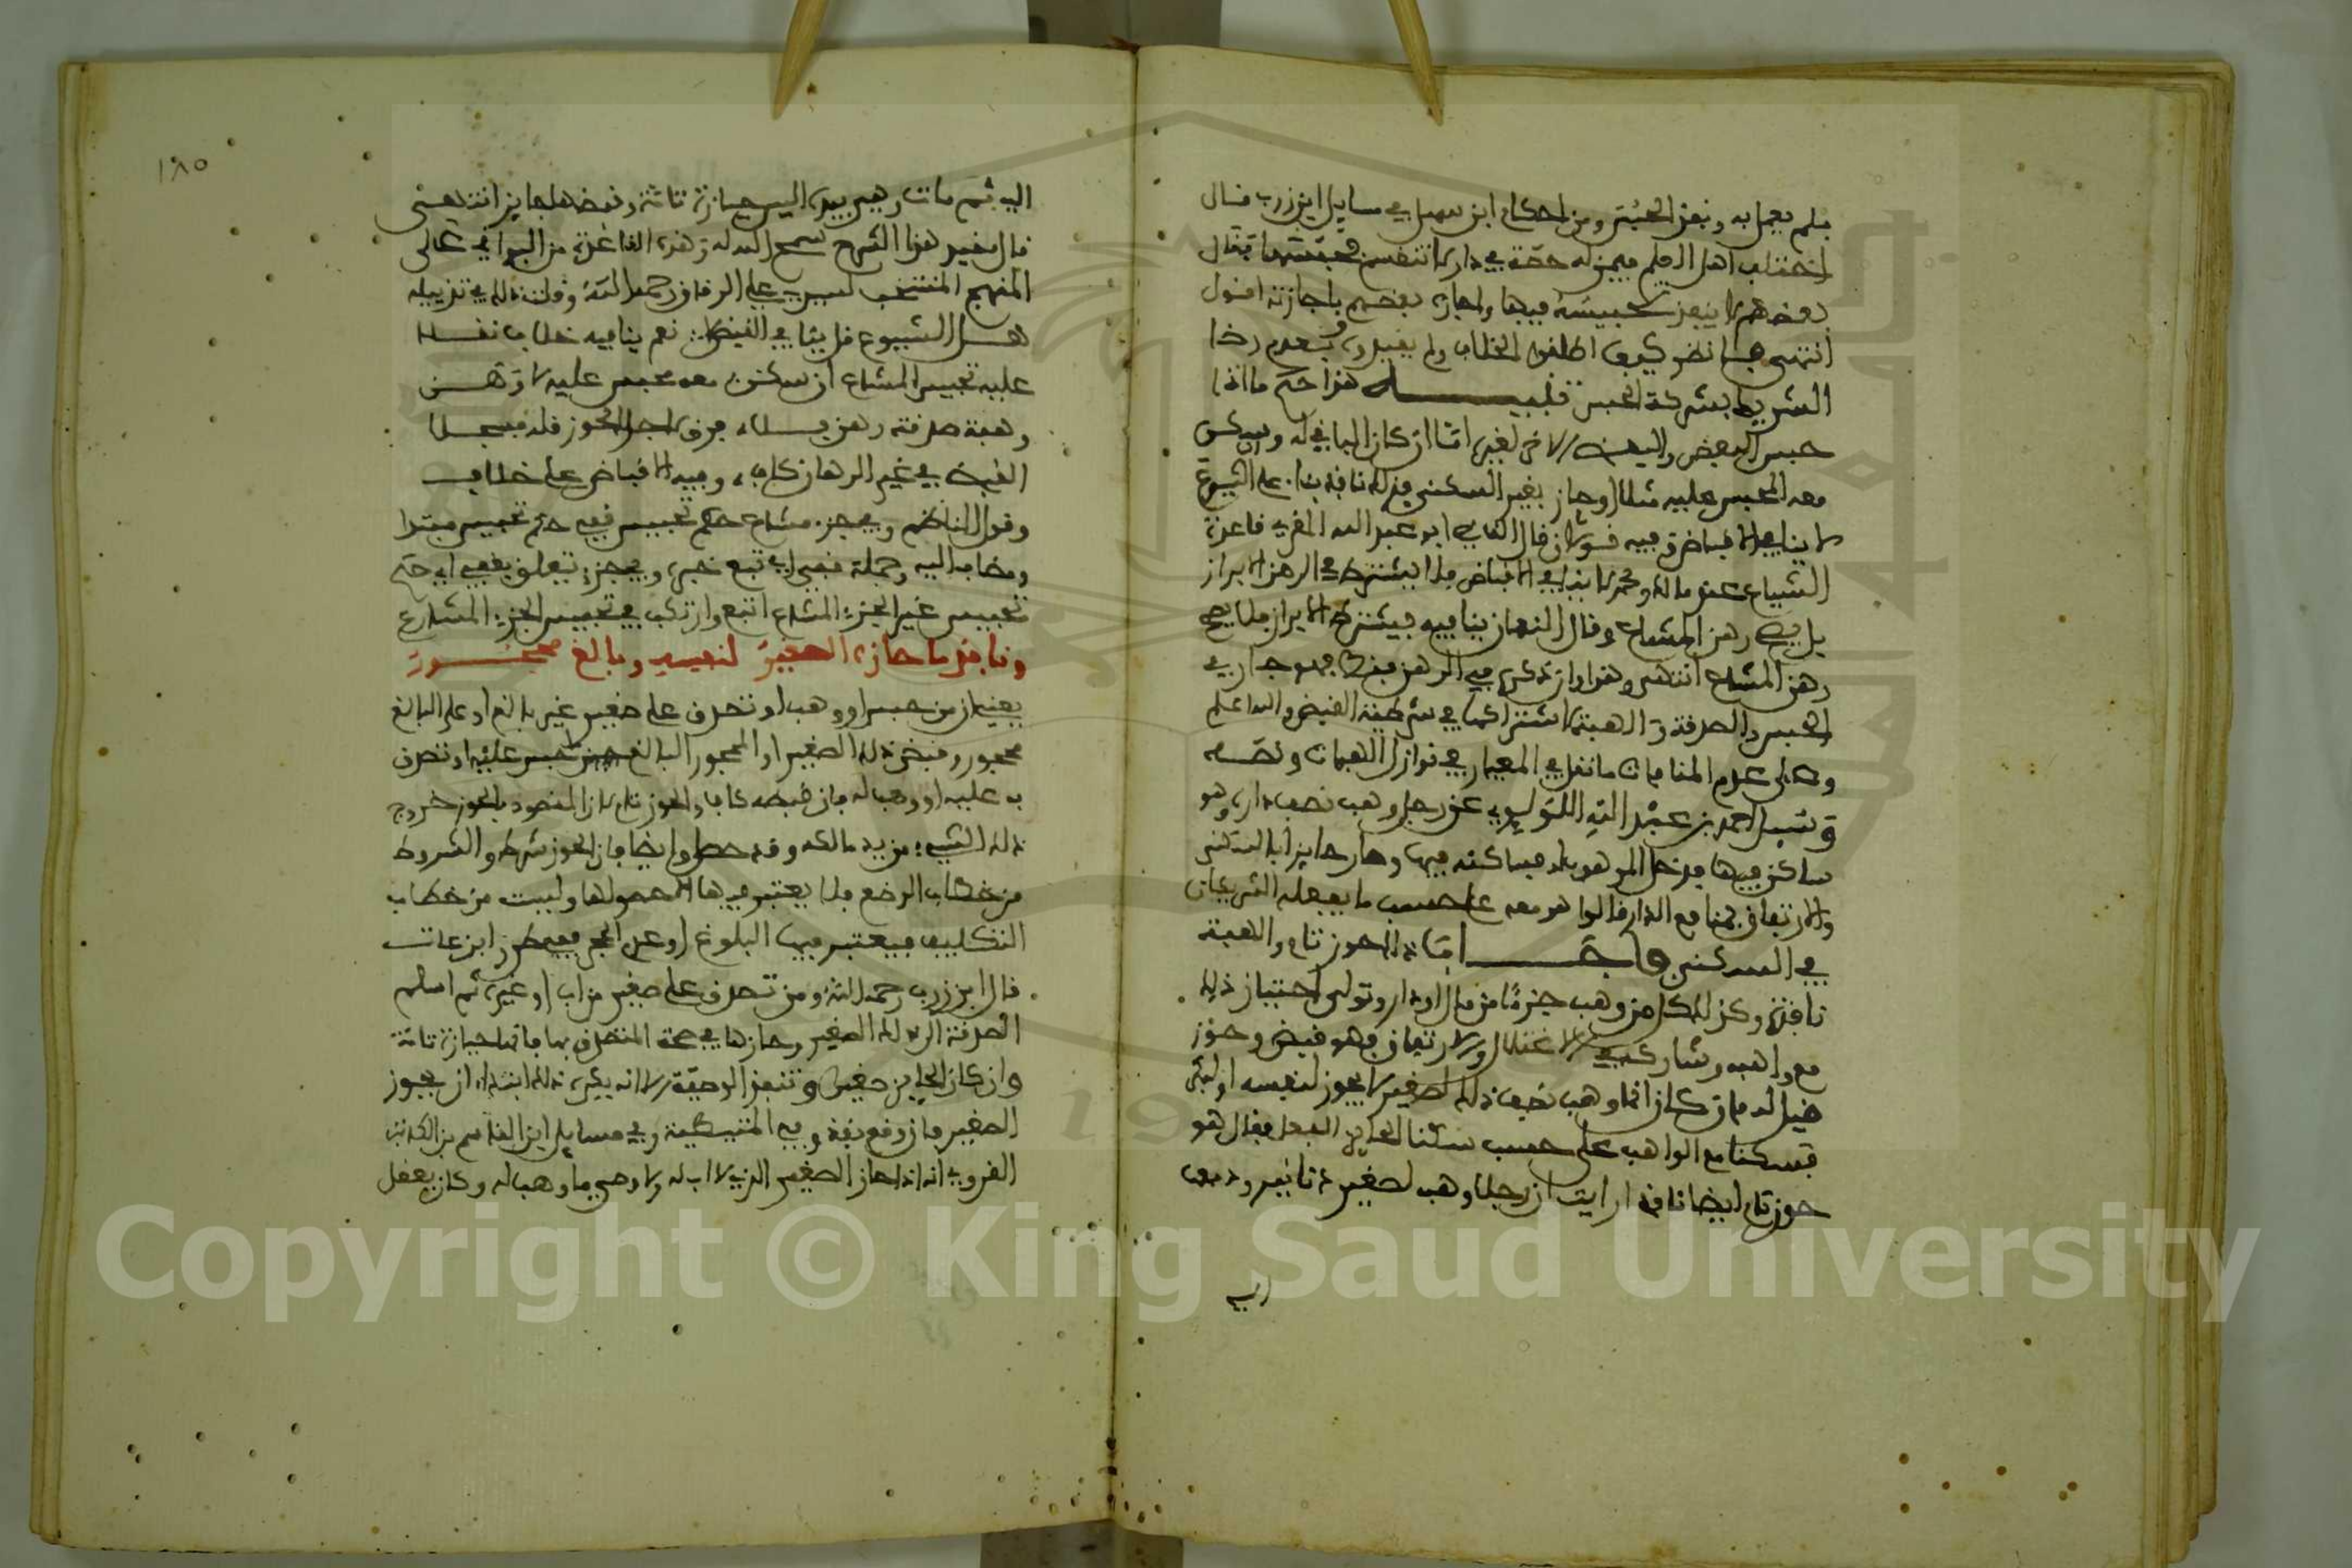 فلم يعمل به ونفذ الحبس ومن احكام ابن سهل في مسايل ابن زرب قال
اختلف اهل العلم فيمن له حصة في دار لا تنقسم فحبسها فقال
بعضهم لا ينفذ تحبيسه فيها واجازه بعضهم باجازته اقول
انتهى فانظر كيف اطلقوا الخلاف ولم يقيدوه بعدم رضا
الشريك بشركة الحبس تنبيه هذا حكم ما اذا
حبس البعض والبعض الاخر لغيره اما ان كان الباقي له وسكن
معه المحبس عليه مثلا او حاز بغير السكنى فذلك نافذ بناء على الشيوع
لا ينافي الاقباض وفيه قولان قال القاضي ابو عبد الله المقري قاعدة
الشياع عند مالك ومحمد لا ينافي الاقباض فلا يشترط في الرهن الابراز
بل يصح رهن المشاع وقال النعمان ينافيه فيشترط الابراز فلا يصح
رهن المشاع انتهى وهذا وان ذكره في الرهن فمثله موجود في
الحبس والصدقة والهبة لاشتراكها في شرطية القبض والله اعلم
وعلى عدم المنافات ما نقل في المعيار في نوازل الهبات ونصه
وسيل احمد بن عبد الله اللؤلؤي عن رجل وهب نصف داره وهو
ساكن فيها فدخل الموهوب له فساكنه فيها وصار حايزا بالسكنى
والارتفاق بمنافع الدار والواهب معه على حسب ما يفعله الشريكان
في السكنى فاجاب اما ذا الحوز تام والهبة
نافذة وكذلك كل من وهب جزءا من مال او دار وتولى احتياز ذلك
مع واهبه وشاركه في الاغتلال والارتفاق فهو قبض وحوز
قيل له فان كان انما وهب نصف ذلك لصغير لا يحوز لنفسه او لبنتي
فسكنا مع الواهب على حسب سكنا الحايز الفعل فقال هو
حوز تام ايضا نافذ ارايت ان رجلا وهب لصغير دنانير ودفعها
اليه
١٨٥
اليه ثم مات وهي بيده اليس حيازة تامة وقبضها جايز انتهى
قال مقيد هذا الشرح سمح الله له وهذه القاعدة من البواقي على
المنهج المنتخب لسيدي علي الزقاق رحمه الله وقلت ذلك في تذييله
هل الشيوع قل ينافي القبض نعم ينافيه خلاف نقلا
عليه تحبيس المشاع ان سكن معه محبس عليه لا وهن
وهبة صدقة رهن
القبض في غير الرهان كاف وفيه الاقباض على خلاف
وقول الناظم وفي جزء مشاع حكم تحبيس قفي حكم تحبيس مبتدا
ومضاف اليه وجملة قفي اي تبع خبره وفي جزء يتعلق بقفي اي حكم
تحبيس غير الجزء المشاع اتبع وارتكب في تحبيس الجزء المشاع
ونافذ ما حازه الصغير لنفسه وبالغ محجور
يعني ان من حبس او وهب او تصدق على صغير غير بالغ او على البالغ
محجور وقبض ذلك الصغير او المحجور البالغ ما حبس عليه او تصدق
به عليه او وهب له فان قبضه كاف والحوز تام لان المقصود بالحوز خروج
ذلك الشيء من يد مالكه وقد حصل وايضا فان الحوز شرط والشروط
من خطاب الوضع فلا يعتبر فيها الا حصولها وليست من خطاب
التكليف فيعتبر فيها البلوغ او عدم الحجر ففي طرر ابن عات
قال ابن زرب رحمه الله ومن تصدق على صغير من اب او غيره ثم اسلم
الصدقة الى ذلك الصغير وحازها في صحة المتصدق بها فانها حيازة تامة
وان كان الحايز صغيرا وتنفذ الوصية الا انه يكره ذلك ابتداء ان يحوز
الصغير فان وقع نفذ وفي المتيطية وفي مسايل ابن القاسم بن الكاتب
القروي انه اذا حاز الصغير الذي لا اب له ولا وصي ما وهب له وكان يعقل
Copyright © King Saud University